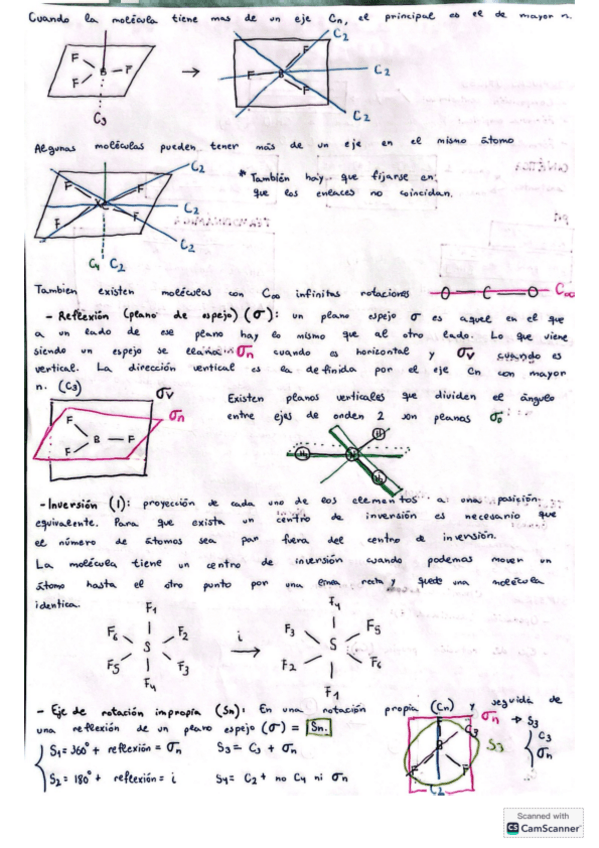 Cuando la molécula tiene mas de un eje Cn, el principal es el de mayor n.
F
F
B
F
C3
F
F
B
C2
C2
C2
Algunas moléculas pueden tener más de un eje en el mismo átomo
F
F
F
F
X
C2
C2
C2
C4 C2
* También hay que fijarse en
que los enlaces no coincidan.
Tambien existen moléculas con C∞ infinitas rotaciones
O C O C∞
- Reflexión (plano de espejo) (σ): un plano espejo σ es aquel en el que
a un lado de ese plano hay lo mismo que al otro lado. Lo que viene
siendo un espejo se llama σn cuando es horizontal y σv cuando es
vertical. La dirección vertical es la definida por el eje Cn con mayor
n. (C3)
σv
σn
F
F
B
F
Existen planos verticales que dividen el ángulo
entre ejes de orden 2 son planos
- Inversión (I): proyección de cada uno de los elementos a una posición
equivalente. Para que exista un centro de inversión es necesario que
el número de átomos sea par fuera del centro de inversión.
La molécula tiene un centro de inversión cuando podemos mover un
átomo hasta el otro punto por una línea recta y quede una molécula
identica.
F1
F6
F2
S
F5
F3
F4
i
F4
F3
F5
S
F2
F6
F1
- Eje de rotación impropia (Sn): En una rotación propia (Cn) y seguida de
una reflexión de un plano espejo (σ) = Sn.
S1 = 360° + reflexión = σn
S3 = C3 + σn
S2 = 180° + reflexión = i
S4 = C2 + no C4 ni σn
σn
C3
S3
B
F
F
C2
→ S3
C3
σn
Scanned with
CS CamScanner